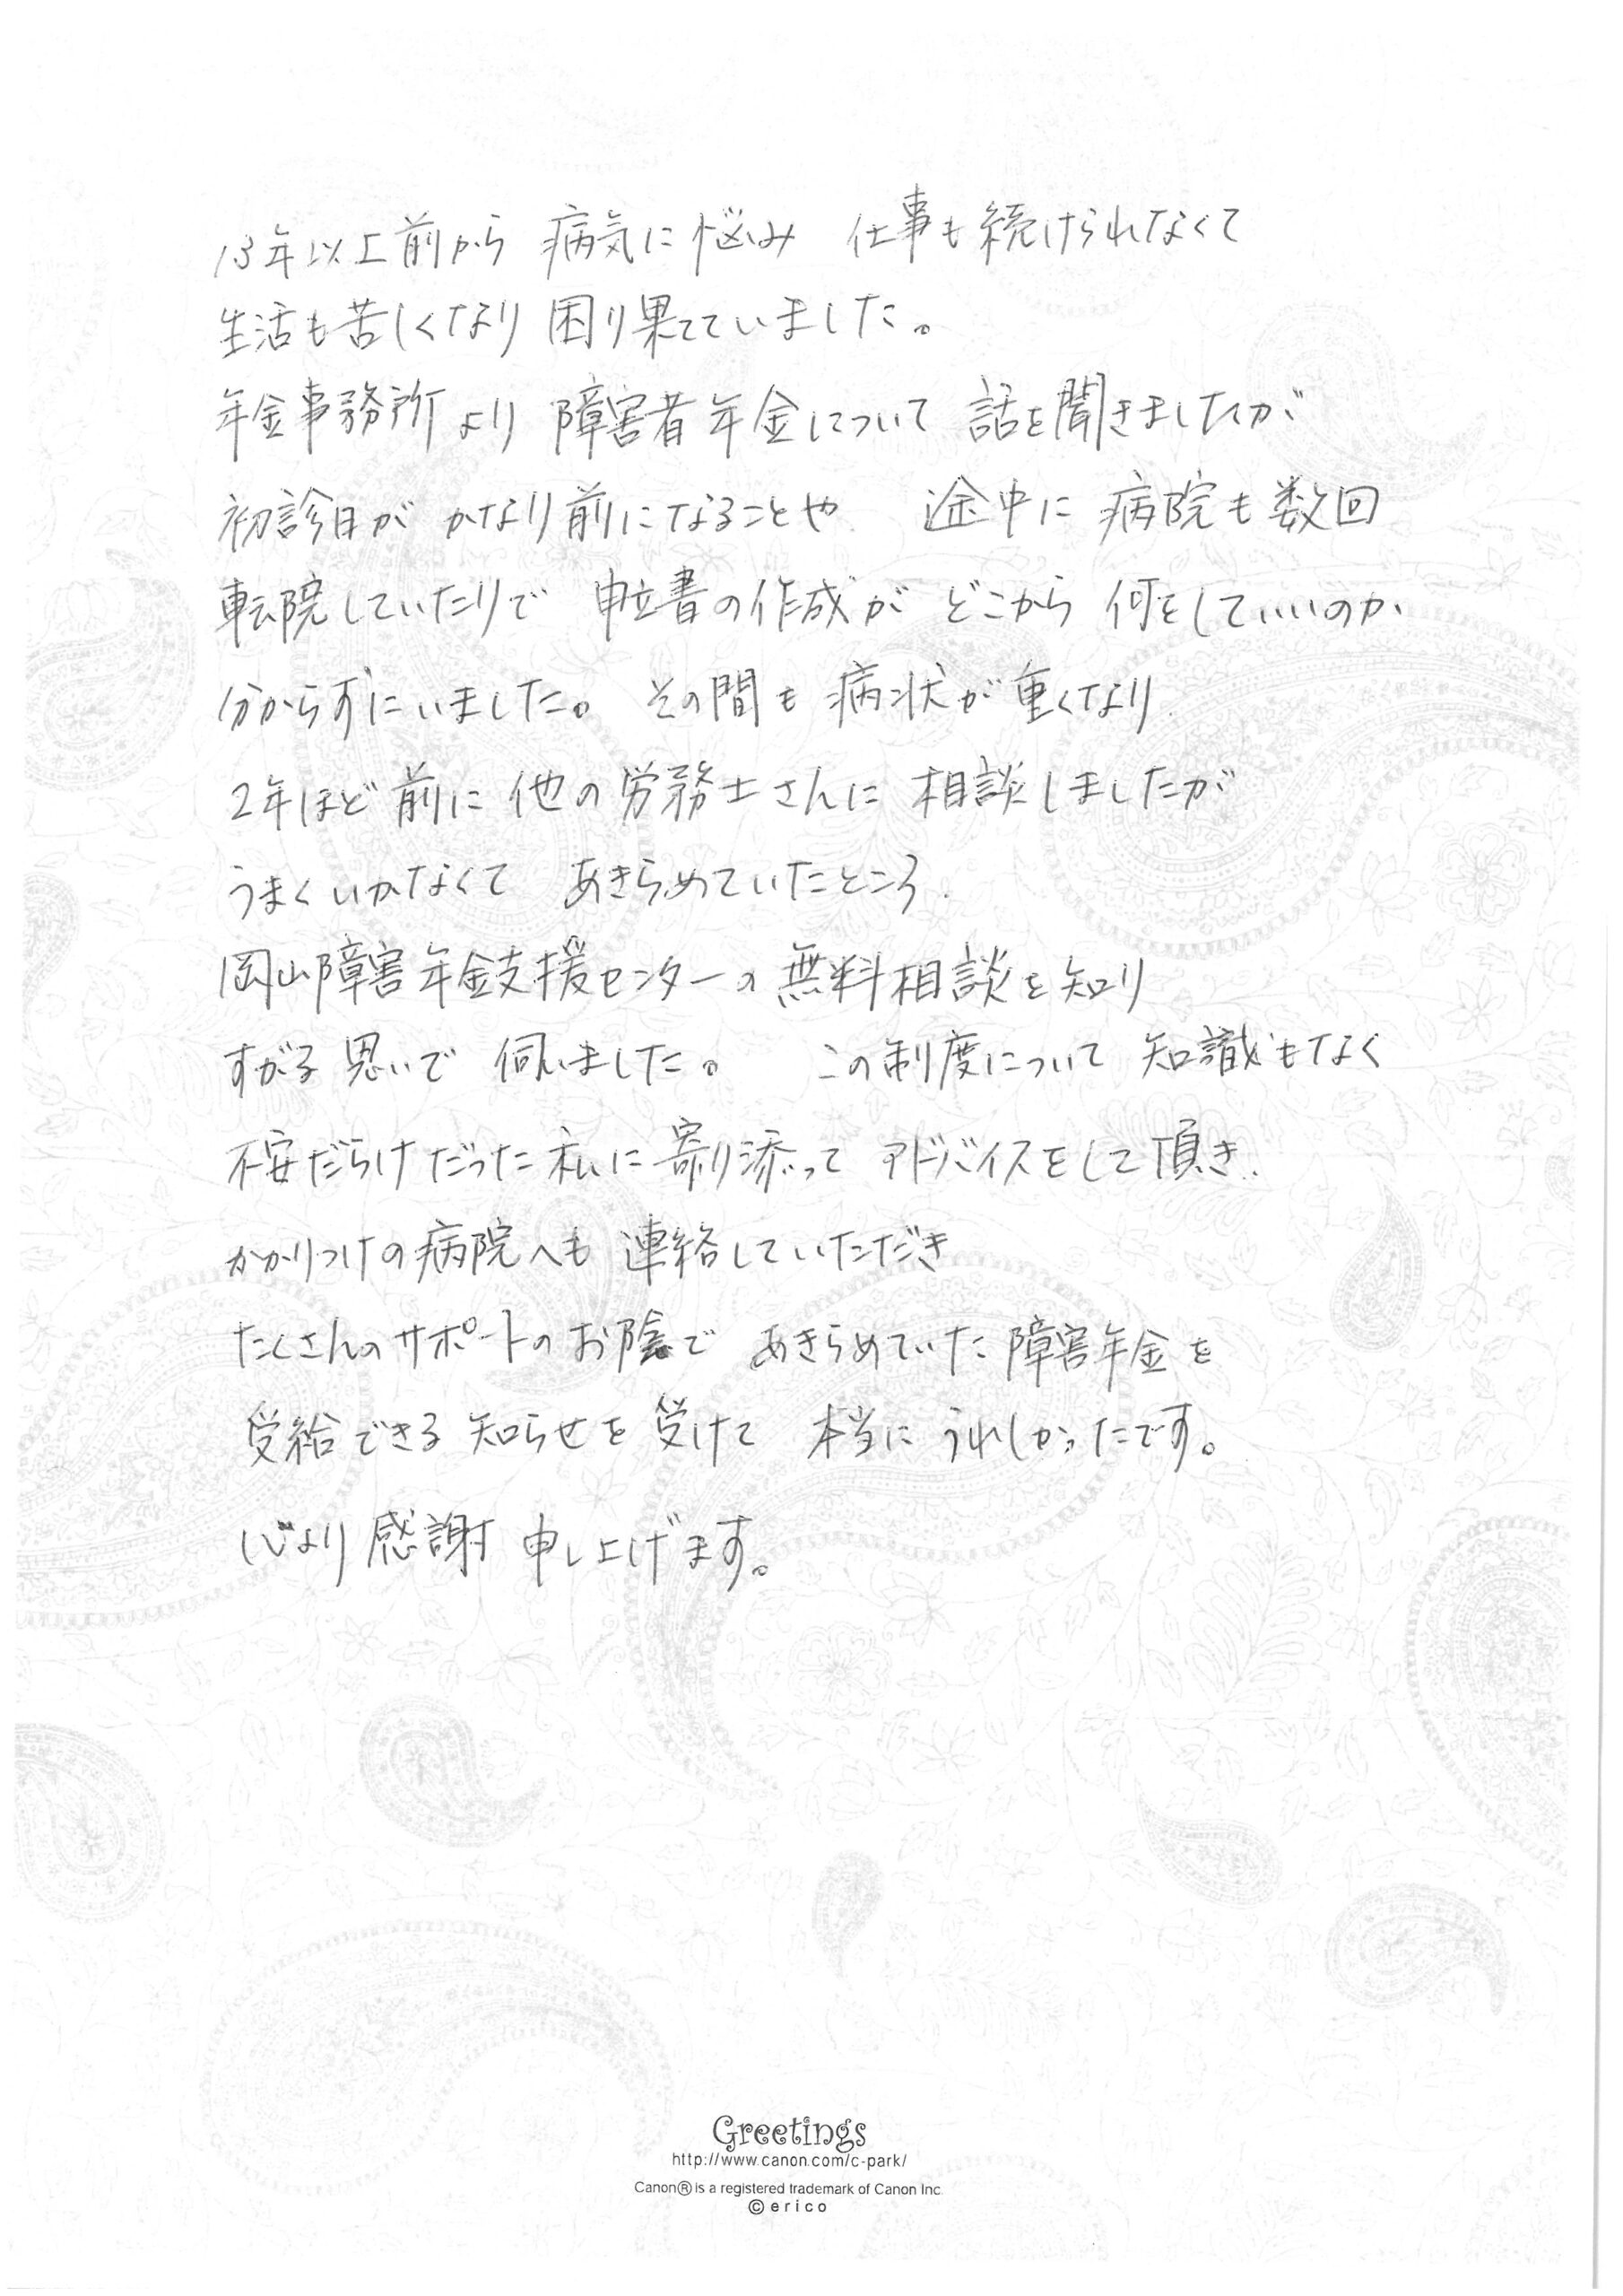 13年以上前から 病気に悩み 仕事も続けられなくて
生活も苦しくなり 困り果てていました。
年金事務所より 障害者年金について 話を聞きましたが
初診日が かなり前になることや 途中に 病院も数回
転院していたりで 申立書の作成が どこから 何をしていいのか
分からずにいました。 その間も 病状が重くなり
2年ほど前に 他の労務士さんに 相談しましたが
うまくいかなくて あきらめていたところ
岡山障害年金支援センターの無料相談を知り
すがる思いで 伺いました。 この制度について 知識もなく
不安だらけだった私に寄り添って アドバイスをして頂き
かかりつけの病院へも 連絡していただき
たくさんのサポートのお陰で あきらめていた障害年金を
受給できる知らせを受けて 本当にうれしかったです。
心より感謝申し上げます。
Greetings
http://www.canon.com/c-park/
Canon® is a registered trademark of Canon Inc.
© erico